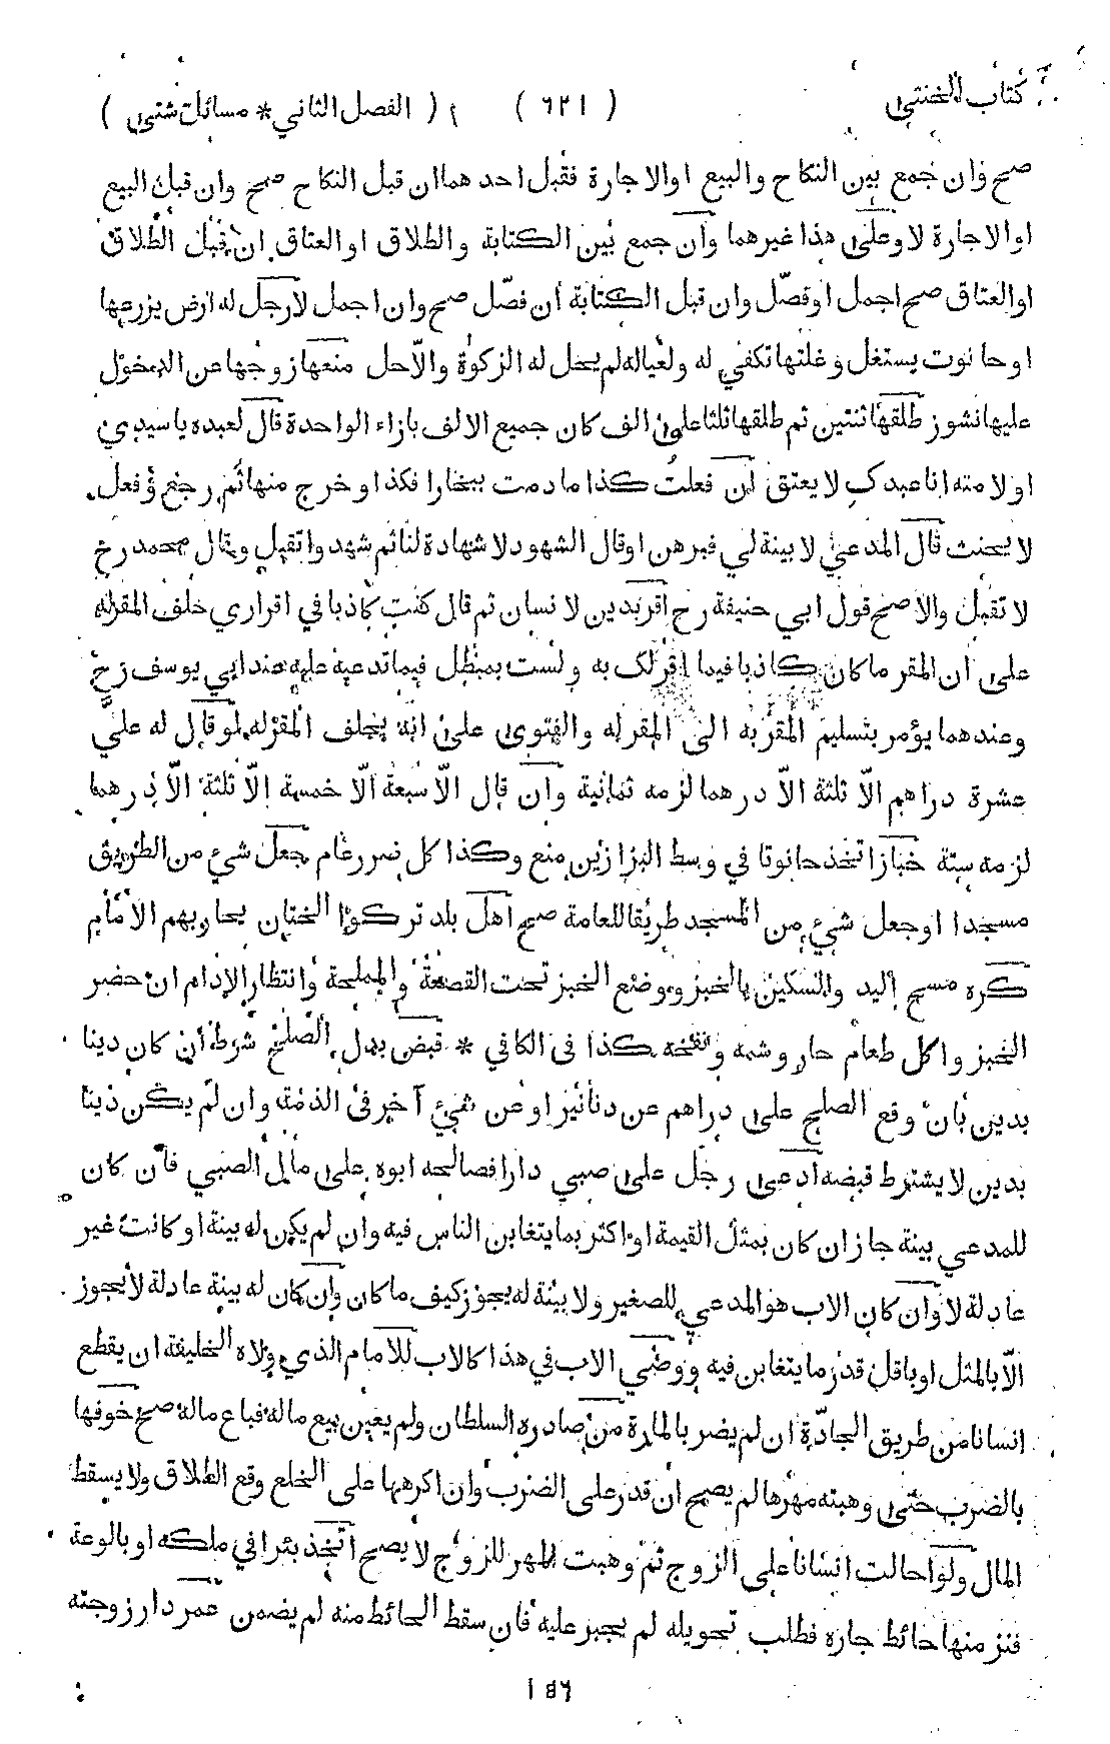 كتاب الخنثى ( ٦٢١ ) ( الفصل الثاني * مسائل شتى )
صح وان جمع بين النكاح والبيع او الاجارة فقبل احدهما ان قبل النكاح صح وان قبل البيع
او الاجارة لا وعلى هذا غيرهما وان جمع بين الكتابة والطلاق او العتاق ان قبل الطلاق
او العتاق صح اجمل او فصّل وان قبل الكتابة ان فصّل صح وان اجمل لا رجل له ارض يزرعها
او حانوت يستغل وغلتها تكفي له ولعياله لم يحل له الزكوة والّا حل منعها زوجها عن الدخول
عليها نشوز طلقها ثنتين ثم طلقها ثلثا على الف كان جميع الالف بازاء الواحدة قال لعبده يا سيدي
او لامته انا عبدك لا يعتق ان فعلت كذا ما دمت ببخارا فكذا وخرج منها ثم رجع وفعل
لا يحنث قال المدعي لا بينة لي فبرهن او قال الشهود لا شهادة لنا ثم شهدوا تقبل وقال محمد رح
لا تقبل والاصح قول ابي حنيفة رح اقر بدين لانسان ثم قال كنت كاذبا في اقراري حلف المقرله
على ان المقر ما كان كاذبا فيما اقر لك به ولست بمبطل فيما تدعيه عليه عند ابي يوسف رح
وعندهما يؤمر بتسليم المقر به الى المقر له والفتوى على انه يحلف المقرله لو قال له علي
عشرة دراهم الّا ثلثة الّا درهما لزمه ثمانية وان قال الّا سبعة الّا خمسة الّا ثلثة الّا درهما
لزمه ستة خباز اتخذ حانوتا في وسط البزازين منع وكذا كل ضرر عام جعل شيء من الطريق
مسجدا او جعل شيء من المسجد طريقا للعامة صح اهل بلد تركوا الختان يحاربهم الامام
كره مسح اليد والسكين بالخبز ووضع الخبز تحت القصعة والمملحة وانتظار الادام ان حضر
الخبز واكل طعام حار وشمه ونفخه كذا فى الكافي * قبض بدل الصلح شرط ان كان دينا
بدين بان وقع الصلح على دراهم عن دنانير او عن شيء آخر فى الذمة وان لم يكن دينا
بدين لا يشترط قبضه ادعى رجل على صبي دارا فصالحه ابوه على مال الصبي فان كان
للمدعي بينة جاز ان كان بمثل القيمة او اكثر بما يتغابن الناس فيه وان لم يكن له بينة او كانت غير
عادلة لا وان كان الاب هو المدعي للصغير ولا بينة له يجوز كيف ما كان وان كان له بينة عادلة لا يجوز
الّا بالمثل او باقل قدر ما يتغابن فيه ووصّي الاب في هذا كالاب للامام الذي ولاه الخليفة ان يقطع
انسانا من طريق الجادّة ان لم يضر بالمارة من صادره السلطان ولم يعين بيع ماله فباع ماله صح خوفها
بالضرب حتى وهبته مهرها لم يصح ان قدر على الضرب وان اكرهها على الخلع وقع الطلاق ولا يسقط
المال ولو احالت انسانا على الزوج ثم وهبت المهر للزوج لا يصح اتخذ بئرا في ملكه او بالوعة
فنز منها حائط جاره فطلب تحويله لم يجبر عليه فان سقط الحائط منه لم يضمن عمر دار زوجته